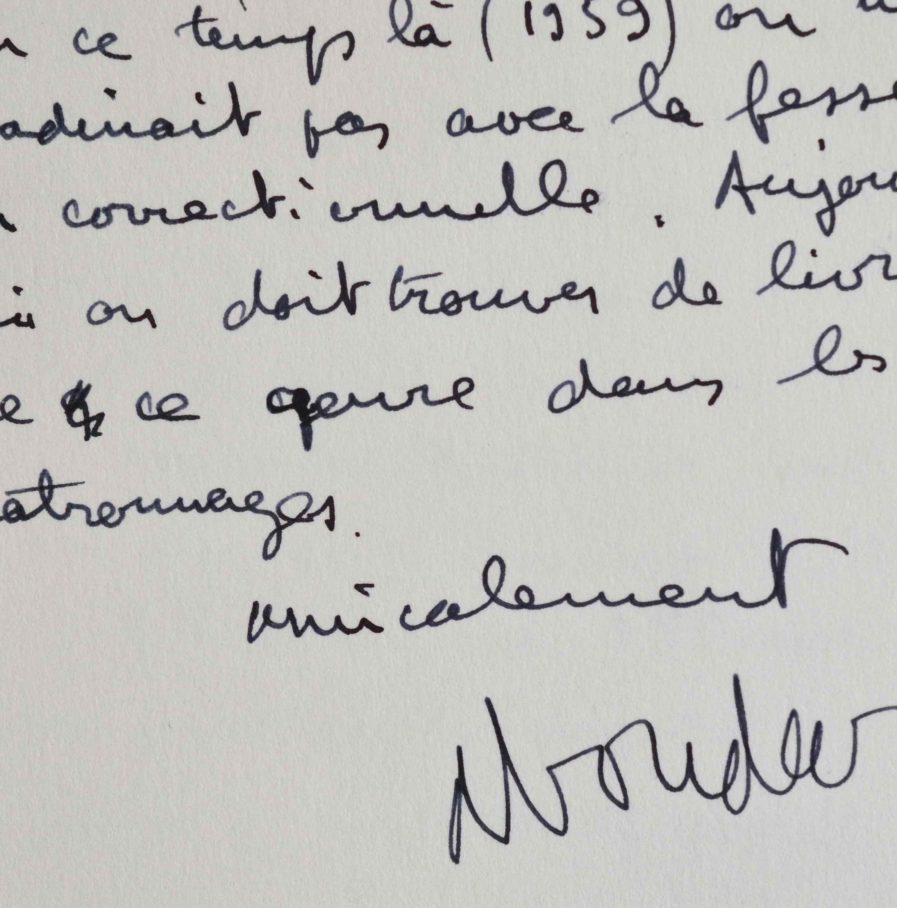 ce temps là (1959) on
adinait pas avec la fesse
correctionnelle. Aujou
on doit trouver de livr
e ce genre dans les
atronnages.
amicalement